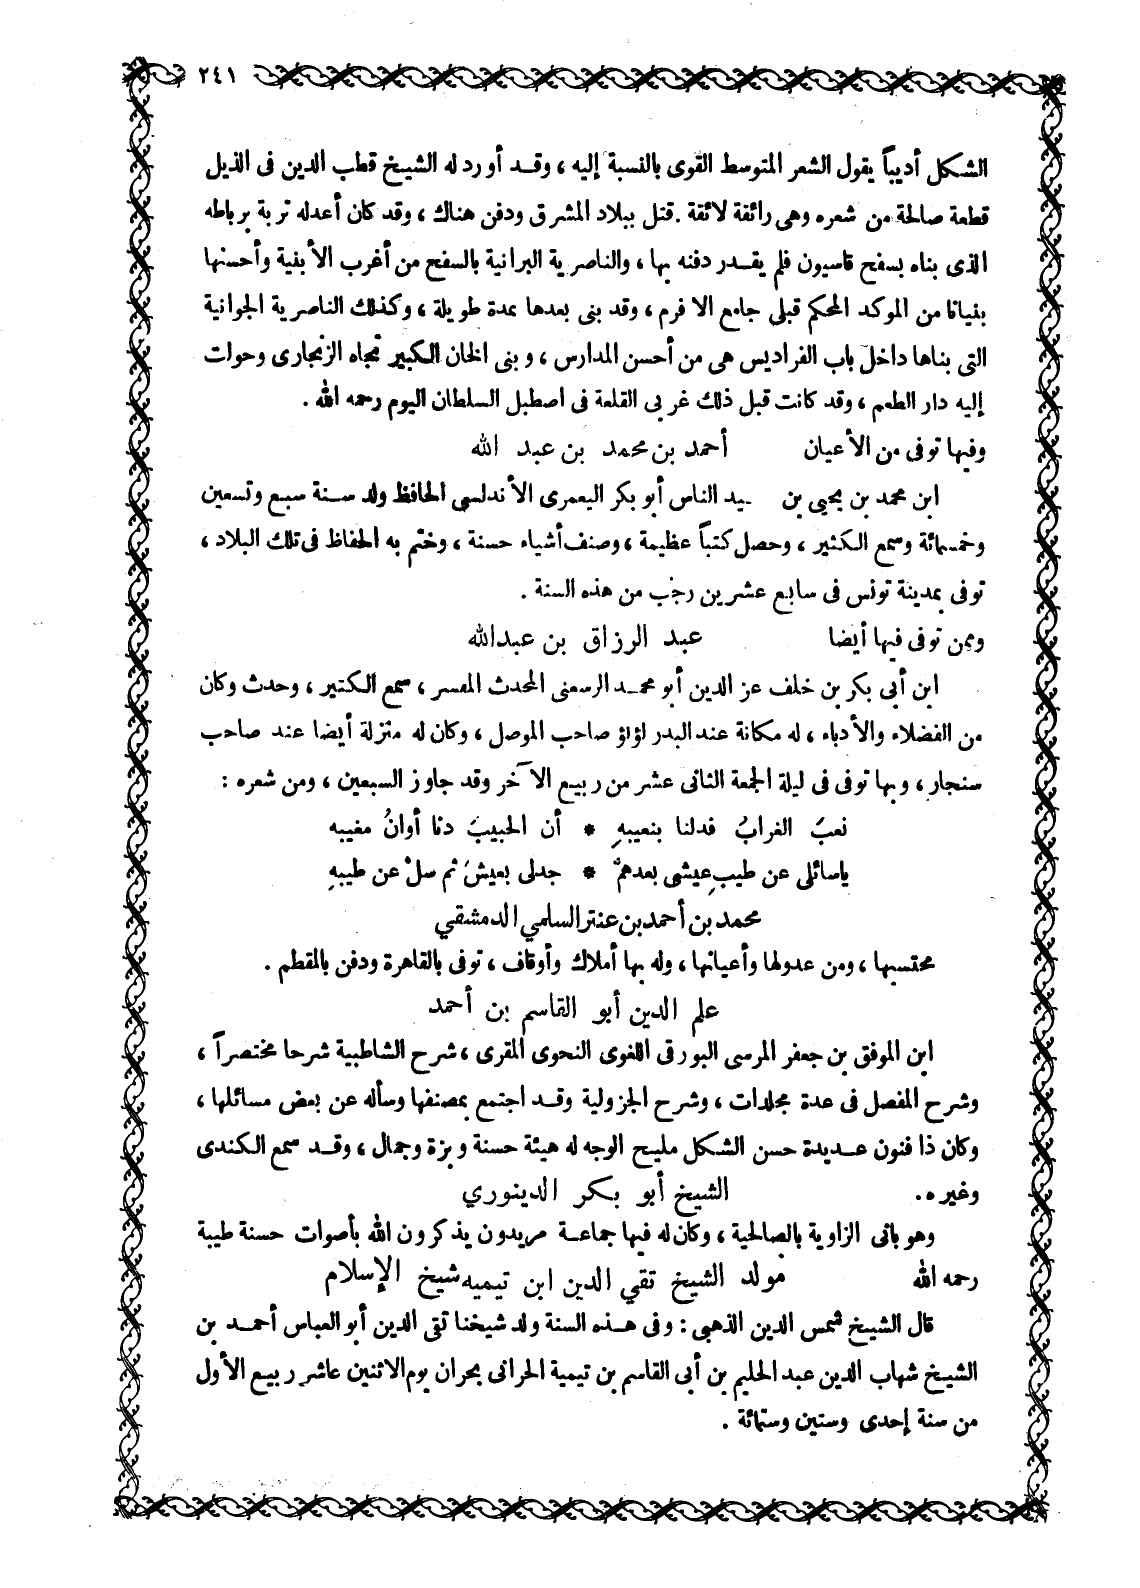 ٢٤١
الشكل أديباً يقول الشعر المتوسط القوى بالنسبة إليه ، وقد أورد له الشيخ قطب الدين فى الذيل
قطعة صالحة من شعره وهى رائقة لائقة . قتل ببلاد المشرق ودفن هناك ، وقد كان أعدله تربة برباطه
الذى بناه بسفح قاسيون فلم يقدر دفنه بها ، والناصرية البرانية بالسفح من أغرب الأبنية وأحسنها
بنيانا من الموكد المحكم قبلى جامع الافرم ، وقد بنى بعدها بمدة طويلة ، وكذلك الناصرية الجوانية
التى بناها داخل باب الفراديس هى من أحسن المدارس ، وبنى الخان الكبير تجاه الزنجارى وحولت
إليه دار الطعم ، وقد كانت قبل ذلك غربى القلعة فى اصطبل السلطان اليوم رحمه الله .
وفيها توفى من الأعيان أحمد بن محمد بن عبد الله
ابن محمد بن يحيى بن يد الناس أبو بكر اليعمرى الأندلسى الحافظ ولد سنة سبع وتسعين
وخمسمائة وسمع الكثير ، وحصل كتباً عظيمة ، وصنف أشياء حسنة ، وختم به الحفاظ فى تلك البلاد ،
توفى بمدينة تونس فى سابع عشرين رجب من هذه السنة .
وممن توفى فيها أيضا عبد الرزاق بن عبدالله
ابن أبى بكر بن خلف عز الدين أبو محمد الرسعنى المحدث المفسر ، سمع الكثير ، وحدث وكان
من الفضلاء والأدباء ، له مكانة عند البدر لؤلؤ صاحب الموصل ، وكان له منزلة أيضا عند صاحب
سنجار ، وبها توفى فى ليلة الجمعة الثانى عشر من ربيع الآخر وقد جاوز السبعين ، ومن شعره :
نعبَ الغرابُ فدلنا بنعيبهِ * أن الحبيبَ دنا أوانُ مغيبه
ياسائلى عن طيبِ عيشى بعدهمْ * جدلى بعيشَ ثم سلْ عن طيبهِ
محمد بن أحمد بن عنتر السلمي الدمشقي
محتسبها ، ومن عدولها وأعيانها ، وله بها أملاك وأوقاف ، توفى بالقاهرة ودفن بالمقطم .
علم الدين أبو القاسم بن أحمد
ابن الموفق بن جعفر المرسى البورقى اللغوى النحوى المقرى ، شرح الشاطبية شرحا مختصراً ،
وشرح المفصل فى عدة مجلدات ، وشرح الجزولية وقد اجتمع بمصنفها وسأله عن بعض مسائلها ،
وكان ذا فنون عديدة حسن الشكل مليح الوجه له هيئة حسنة وبزة وجمال ، وقد سمع الكندى
وغيره . الشيخ أبو بكر الدينوري
وهو بانى الزاوية بالصالحية ، وكان له فيها جماعة مريدون يذكرون الله بأصوات حسنة طيبة
رحمه الله مولد الشيخ تقي الدين ابن تيميه شيخ الإسلام
قال الشيخ شمس الدين الذهبى : وفى هذه السنة ولد شيخنا تقى الدين أبو العباس أحمد بن
الشيخ شهاب الدين عبد الحليم بن أبى القاسم بن تيمية الحرانى بحران يوم الاثنين عاشر ربيع الأول
من سنة إحدى وستين وستمائة .